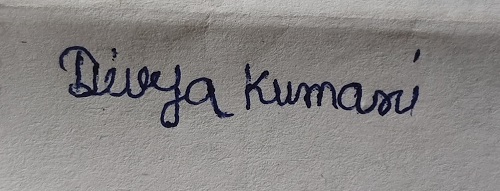 Divya kumari